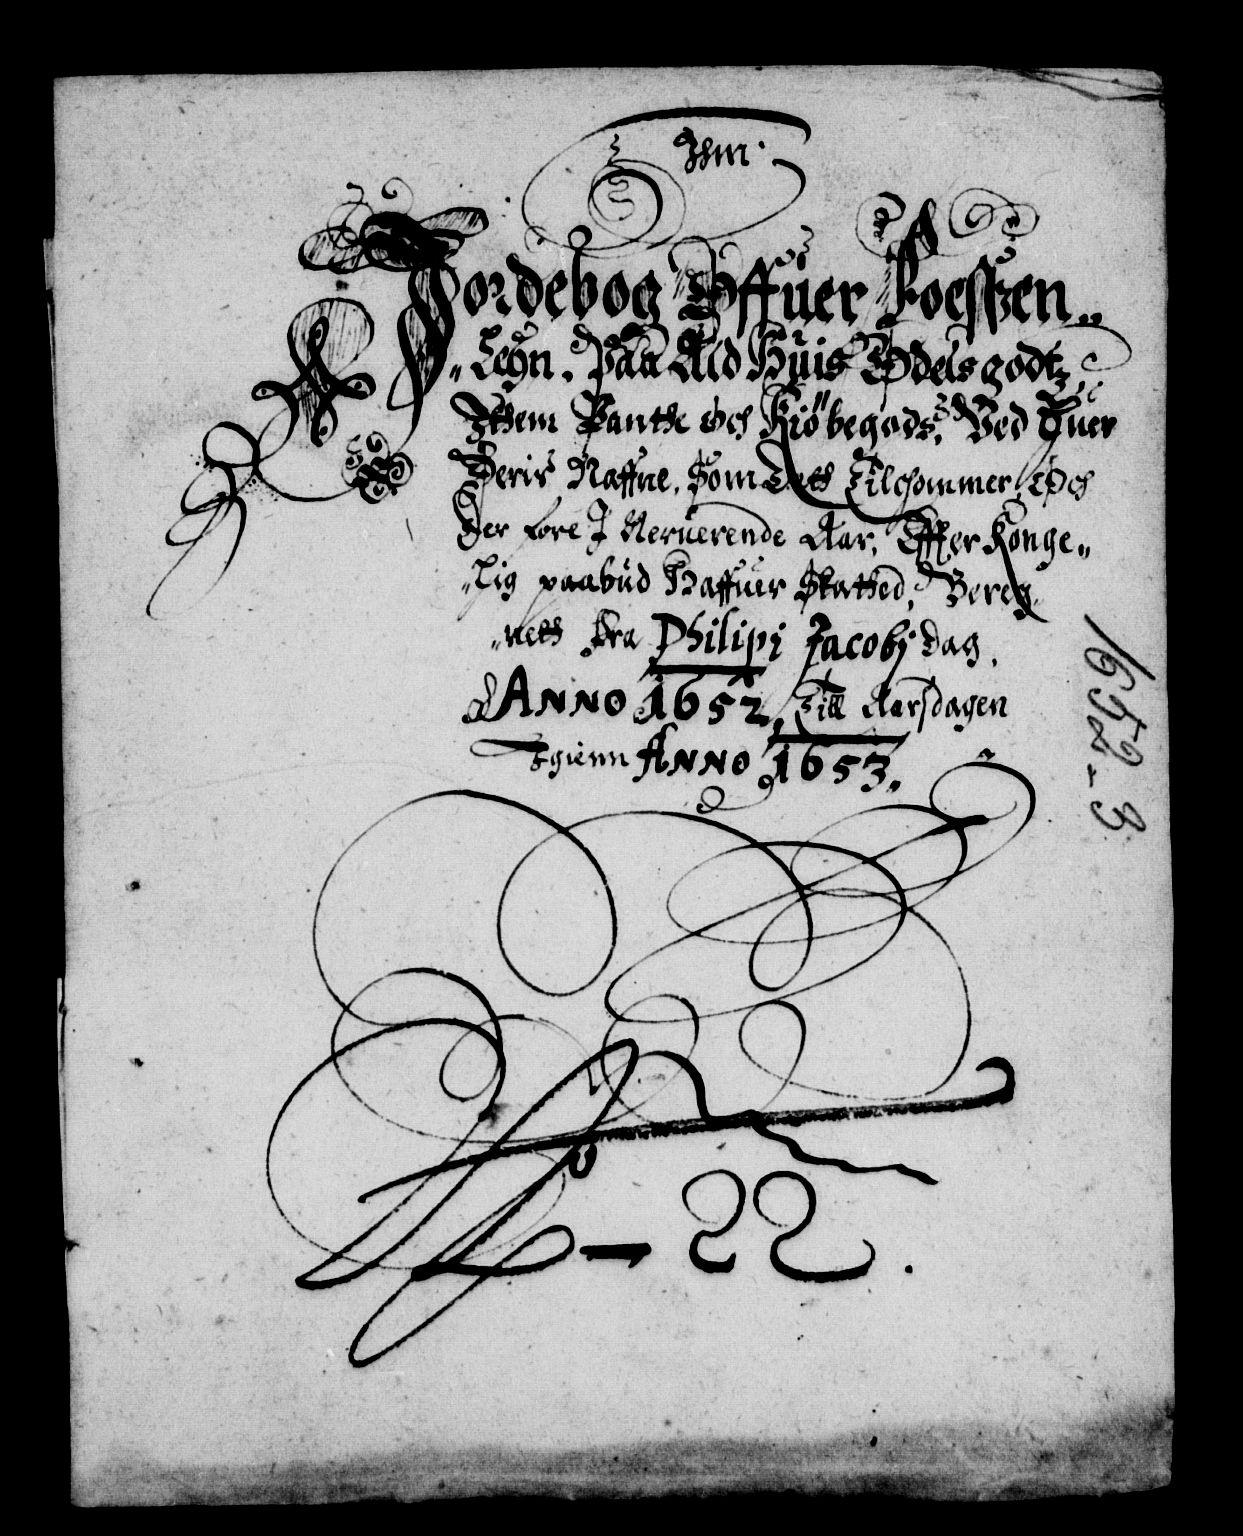 Jordebog Offuer Foeszen„
„Lehn. Paa Ald Huis Odels godtz,
Ithem Panthe och Kiöbegods, Ved Huer
Deris Naffne, Som Dets Tilchommer, Och
der fore J Neruerende Aar, Effter Konge„
„lig paabud Haffuer Skatted, Bereg„
„nett fra Philipi Jacobj dag,
ANNO 1652, Till Aarsdagen
Igienn ANNO 1653.
1652-3
– 22.